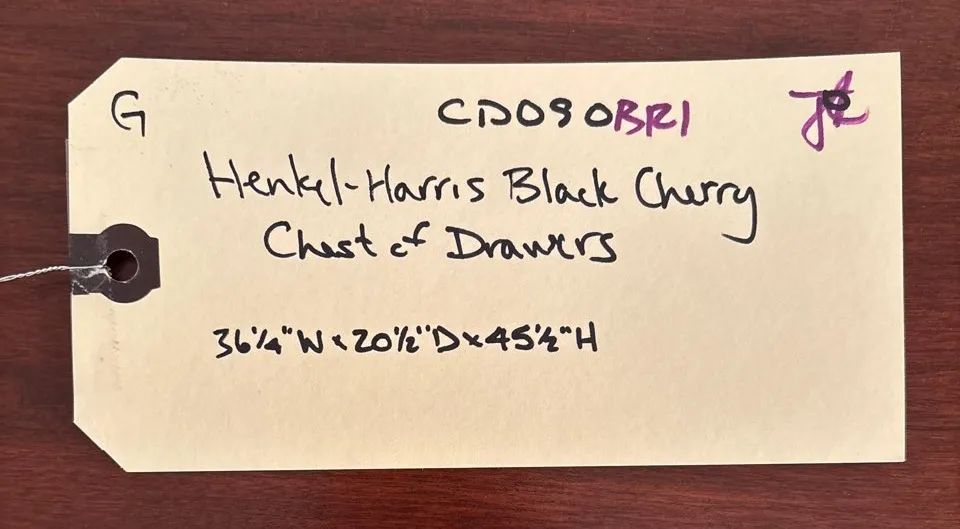 G CD090BR1
Henkel-Harris Black Cherry
Chest of Drawers
36¼"W x 20½"D x 45½"H